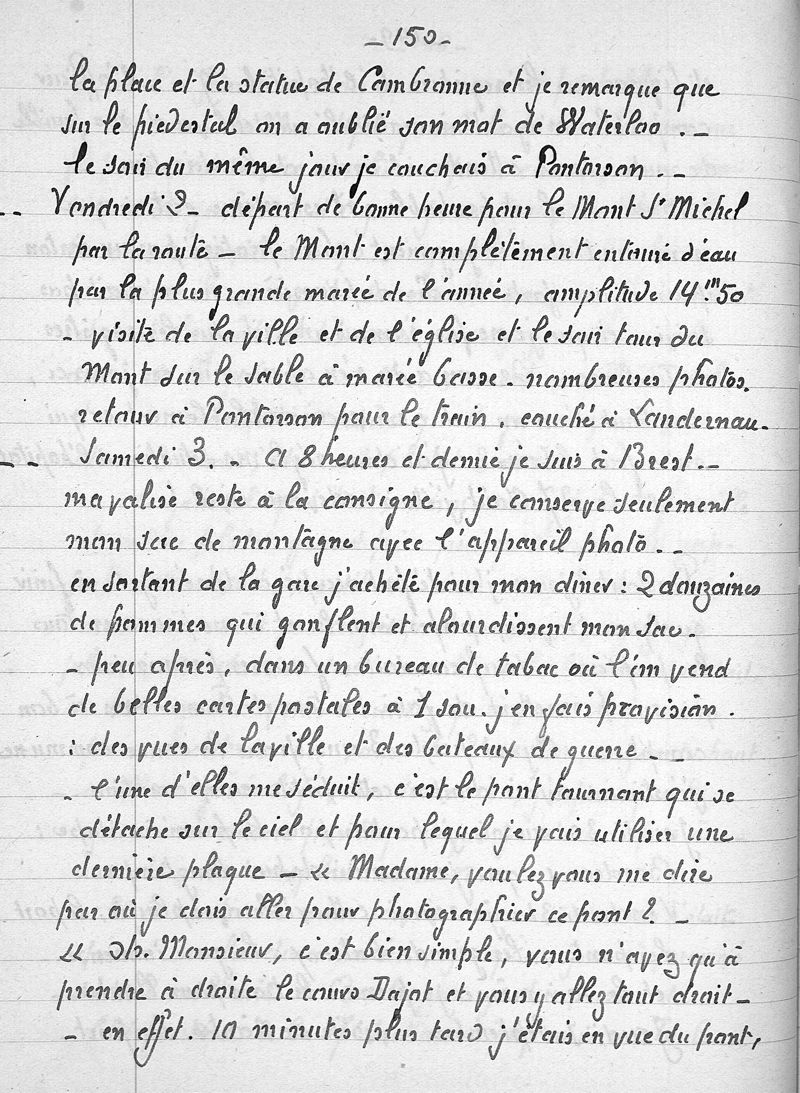 - 150 -
la place et la statue de Cambronne et je remarque que
sur le piedestal on a oublié son mot de Waterloo . --
le soir du même jour je couchais à Pontorson . --
-- Vendredi 2 - départ de bonne heure pour le Mont St Michel
par la route - le Mont est complètement entouré d'eau
par la plus grande marée de l'année, amplitude 14m50
- visite de la ville et de l'église et le soir tour du
Mont sur le sable à marée basse. nombreuses photos.
retour à Pontorson pour le train. couché à Landernau.
-- Samedi 3. - A 8 heures et demie je suis à Brest. --
ma valise reste à la consigne, je conserve seulement
mon sac de montagne avec l'appareil photo. --
en sortant de la gare j'achète pour mon diner : 2 douzaines
de pommes qui gonflent et alourdissent mon sac.
- peu après, dans un bureau de tabac où l'on vend
de belles cartes postales à 1 sou. j'en fais provision.
: des vues de la ville et des bateaux de guerre - -
- l'une d'elles me séduit, c'est le pont tournant qui se
détache sur le ciel et pour lequel je vais utiliser une
dernière plaque - « Madame, voulez vous me dire
par où je dois aller pour photographier ce pont ? -
« oh. Monsieur, c'est bien simple, vous n'avez qu'à
prendre à droite le cours Dajot et vous y allez tout droit -
- en effet. 10 minutes plus tard j'étais en vue du pont,